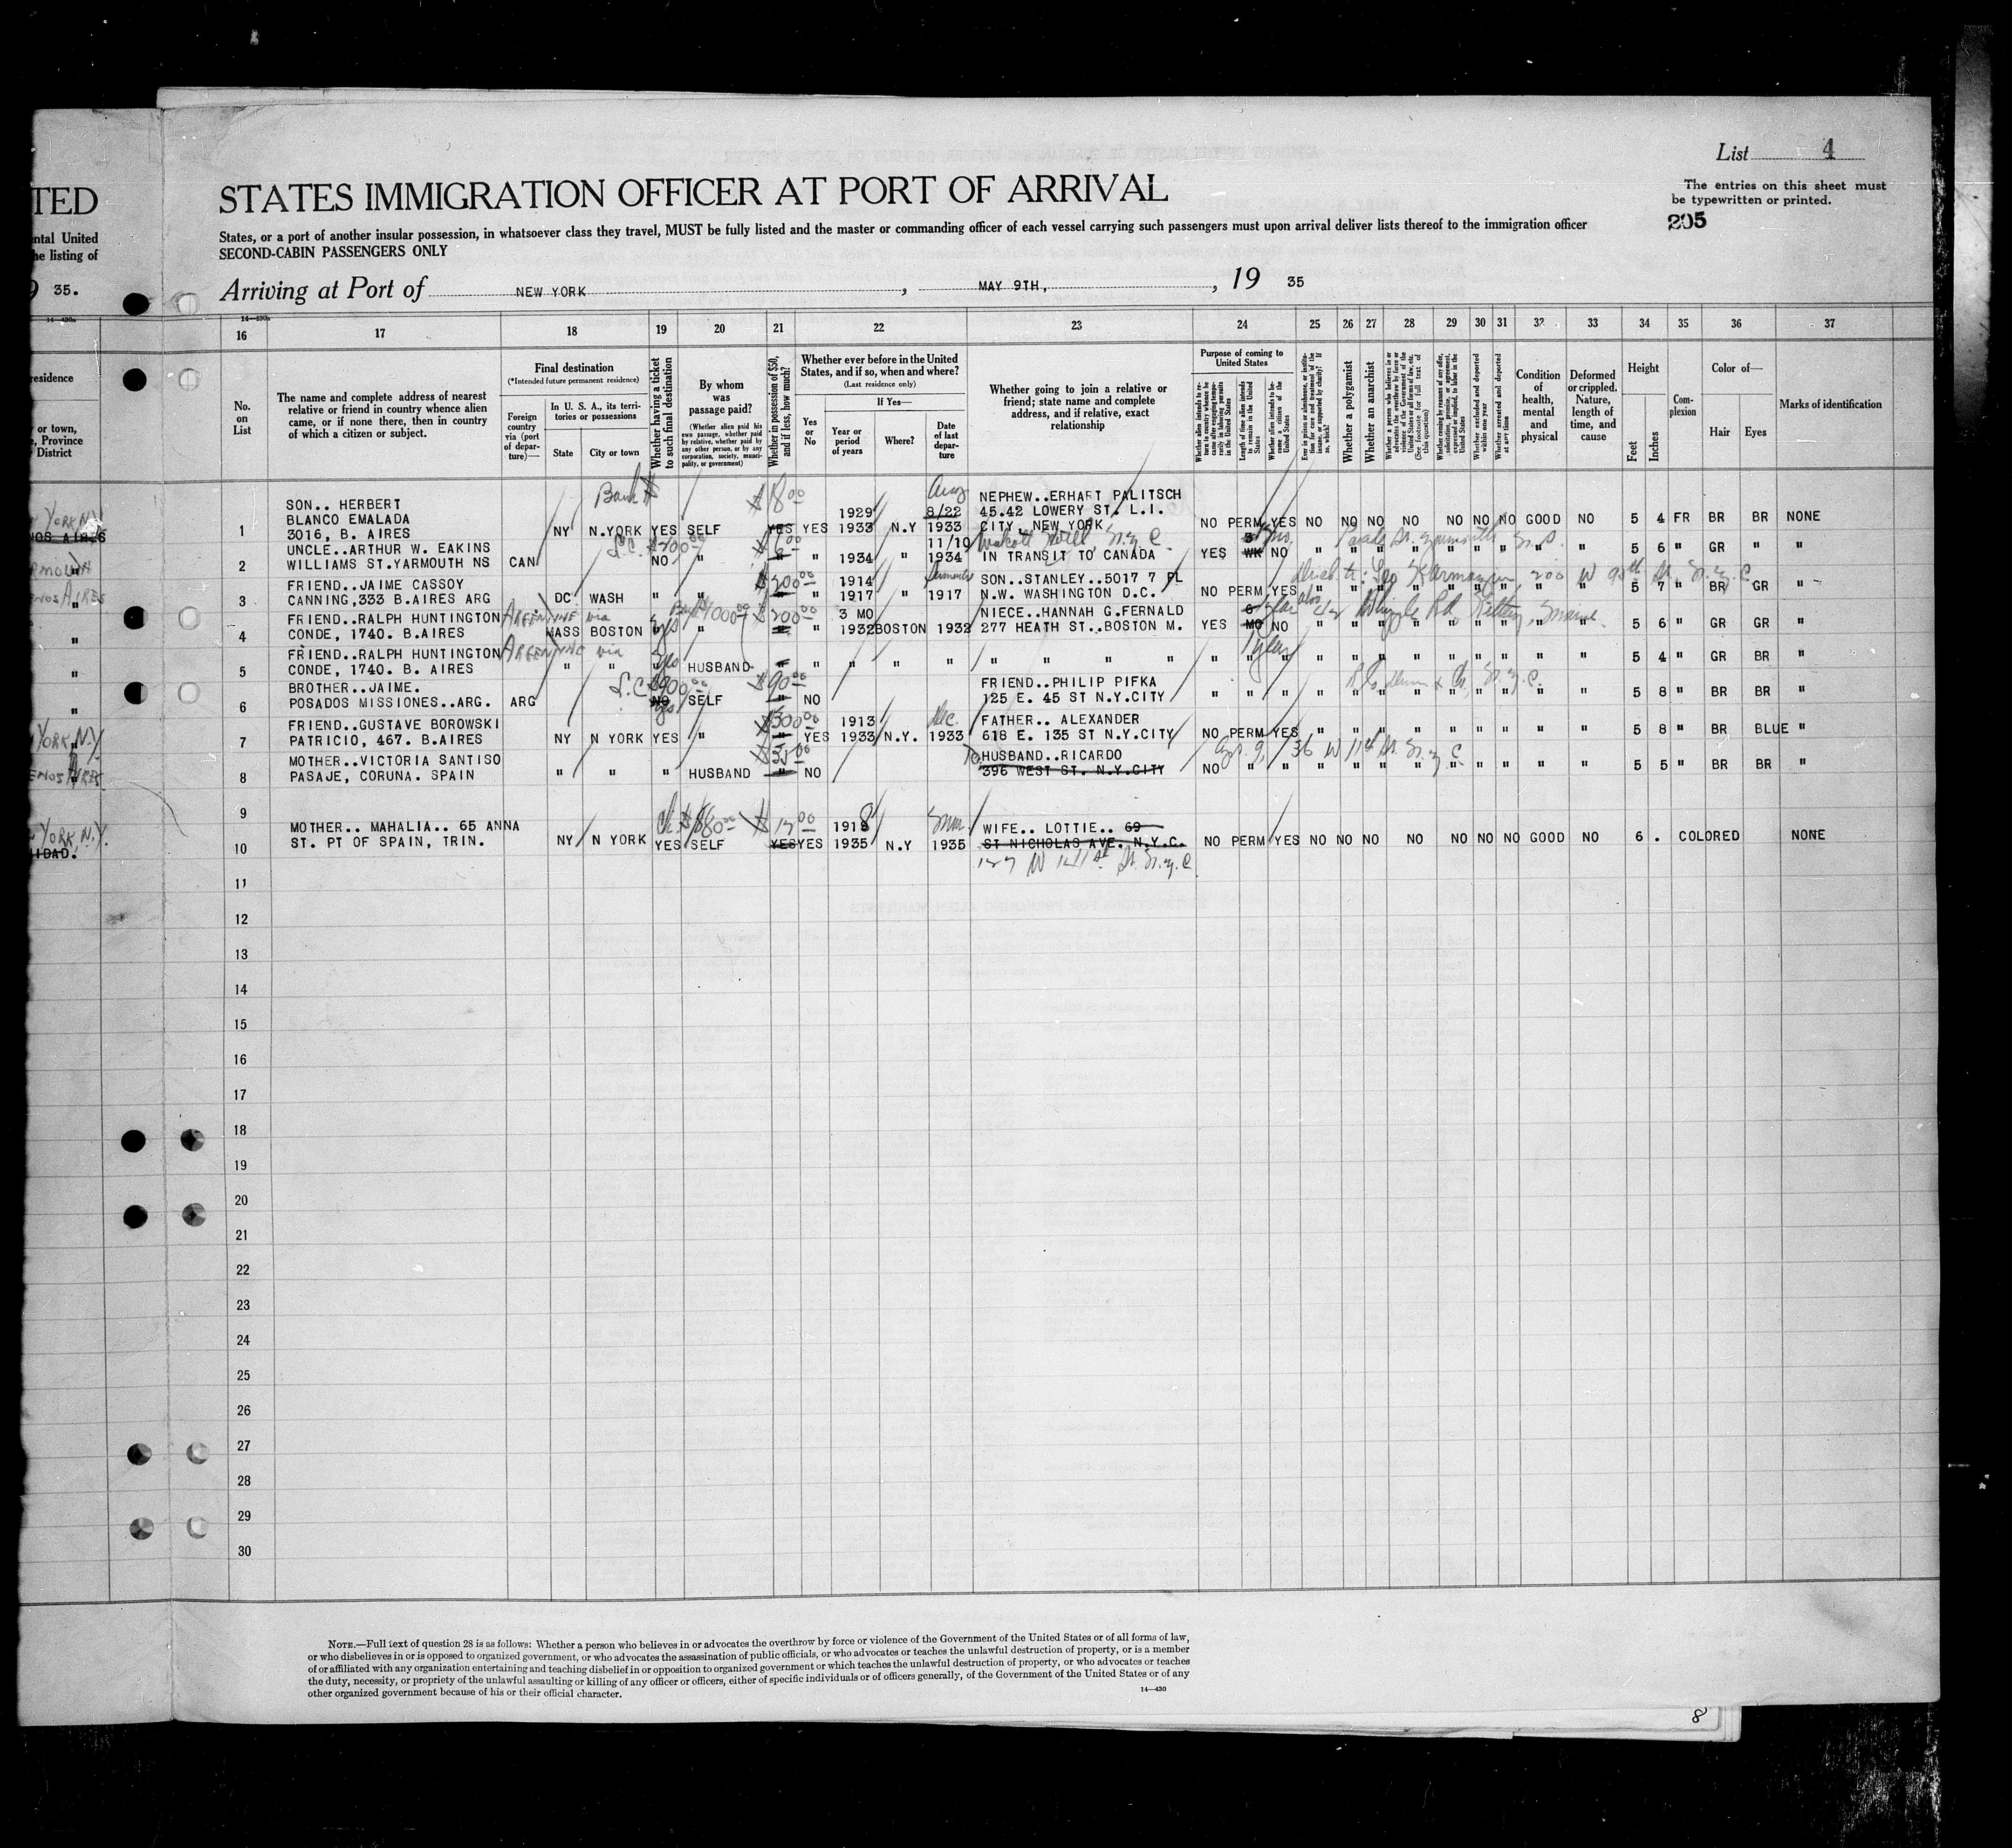 List 4
The entries on this sheet must
be typewritten or printed.
205
TED
STATES IMMIGRATION OFFICER AT PORT OF ARRIVAL
ental United
he listing of
States, or a port of another insular possession, in whatsoever class they travel, MUST be fully listed and the master or commanding officer of each vessel carrying such passengers must upon arrival deliver lists thereof to the immigration officer
SECOND-CABIN PASSENGERS ONLY
35.
Arriving at Port of NEW YORK, MAY 9TH, 19 35
14—430a
16 17 18 19 20 21 22 23 24 25 26 27 28 29 30 31 32 33 34 35 36 37
residence
or town,
e, Province
District
No. on List
The name and complete address of nearest
relative or friend in country whence alien
came, or if none there, then in country
of which a citizen or subject.
Final destination
(*Intended future permanent residence)
Foreign country via (port of departure)—
In U. S. A., its territories or possessions
State
City or town
Whether having a ticket to such final destination
By whom was passage paid?
(Whether alien paid his own passage, whether paid by relative, whether paid by any other person, or by any corporation, society, municipality, or government)
Whether in possession of $50, and if less, how much?
Whether ever before in the United
States, and if so, when and where?
(Last residence only)
Yes or No
If Yes—
Year or period of years
Where?
Date of last departure
Whether going to join a relative or
friend; state name and complete
address, and if relative, exact
relationship
Purpose of coming to United States
Length of time alien intends to remain in the United States
Whether alien intends to become a citizen of the United States
Whether a polygamist
Whether an anarchist
Whether arrested and deported at any time
Condition of health, mental and physical
Deformed or crippled. Nature, length of time, and cause
Height
Feet
Inches
Complexion
Color of—
Hair
Eyes
Marks of identification
SON.. HERBERT Bank $18.00 Aug NEPHEW..ERHART PALITSCH
BLANCO EMALADA 1929 8/22 45.42 LOWERY ST. L.I.
1 3016, B. AIRES NY N.YORK YES SELF YES YES 1933 N.Y 1933 CITY, NEW YORK NO PERM YES NO NO NO NO NO NO NO GOOD NO 5 4 FR BR BR NONE
UNCLE..ARTHUR W. EAKINS 11/10
2 WILLIAMS ST.YARMOUTH NS CAN NO " " " 1934 " 1934 IN TRANSIT TO CANADA YES WK NO " " " " " " " " " 5 6 " GR " "
FRIEND..JAIME CASSOY $200.00 1914 SON..STANLEY..5017 7 PL
3 CANNING,333 B.AIRES ARG DC WASH " " " " 1917 " 1917 N.W. WASHINGTON D.C. NO PERM YES " " " " " " " " " 5 7 " BR GR "
FRIEND..RALPH HUNTINGTON ARGENTINE via $200.00 3 MO NIECE..HANNAH G.FERNALD
4 CONDE, 1740. B.AIRES MASS BOSTON " " " 1932 BOSTON 1932 277 HEATH ST..BOSTON M. YES MO NO " " " " " " " " " 5 6 " GR GR "
FRIEND..RALPH HUNTINGTON ARGENTINE via 1 year
5 CONDE, 1740. B. AIRES " " " HUSBAND " " " " " " " " " " " " " " " " " " " " " 5 4 " GR BR "
BROTHER..JAIME. $90.00 FRIEND..PHILIP PIFKA
6 POSADOS MISSIONES..ARG. ARG NO yes SELF " NO 125 E. 45 ST N.Y.CITY " " " " " " " " " " " " 5 8 " BR BR "
FRIEND..GUSTAVE BOROWSKI $300.00 1913 Dec. FATHER.. ALEXANDER
7 PATRICIO, 467. B.AIRES NY N YORK YES " " YES 1933 N.Y. 1933 618 E. 135 ST N.Y.CITY NO PERM YES " " " " " " " " " 5 8 " BR BLUE "
MOTHER..VICTORIA SANTISO $35.00 HUSBAND..RICARDO 36 W 11th St. N.Y.C.
8 PASAJE, CORUNA. SPAIN " " " HUSBAND " NO 396 WEST ST. N.Y.CITY NO " " " " " " " " " " " 5 5 " BR BR "
9
MOTHER.. MAHALIA.. 65 ANNA 1918 WIFE.. LOTTIE.. 69
10 ST. PT OF SPAIN, TRIN. NY N YORK YES SELF YES YES 1935 N.Y 1935 ST NICHOLAS AVE. N.Y.C. NO PERM YES NO NO NO NO NO NO NO GOOD NO 6 . COLORED NONE
YORK, N.Y.
11
12
13
14
15
16
17
18
19
20
21
22
23
24
25
26
27
28
29
30
NOTE.—Full text of question 28 is as follows: Whether a person who believes in or advocates the overthrow by force or violence of the Government of the United States or of all forms of law,
or who disbelieves in or is opposed to organized government, or who advocates the assassination of public officials, or who advocates or teaches the unlawful destruction of property, or is a member
of or affiliated with any organization entertaining and teaching disbelief in or opposition to organized government or which teaches the unlawful destruction of property, or who advocates or teaches
the duty, necessity, or propriety of the unlawful assaulting or killing of any officer or officers, either of specific individuals or of officers generally, of the Government of the United States or of any
other organized government because of his or their official character.
14—430
8